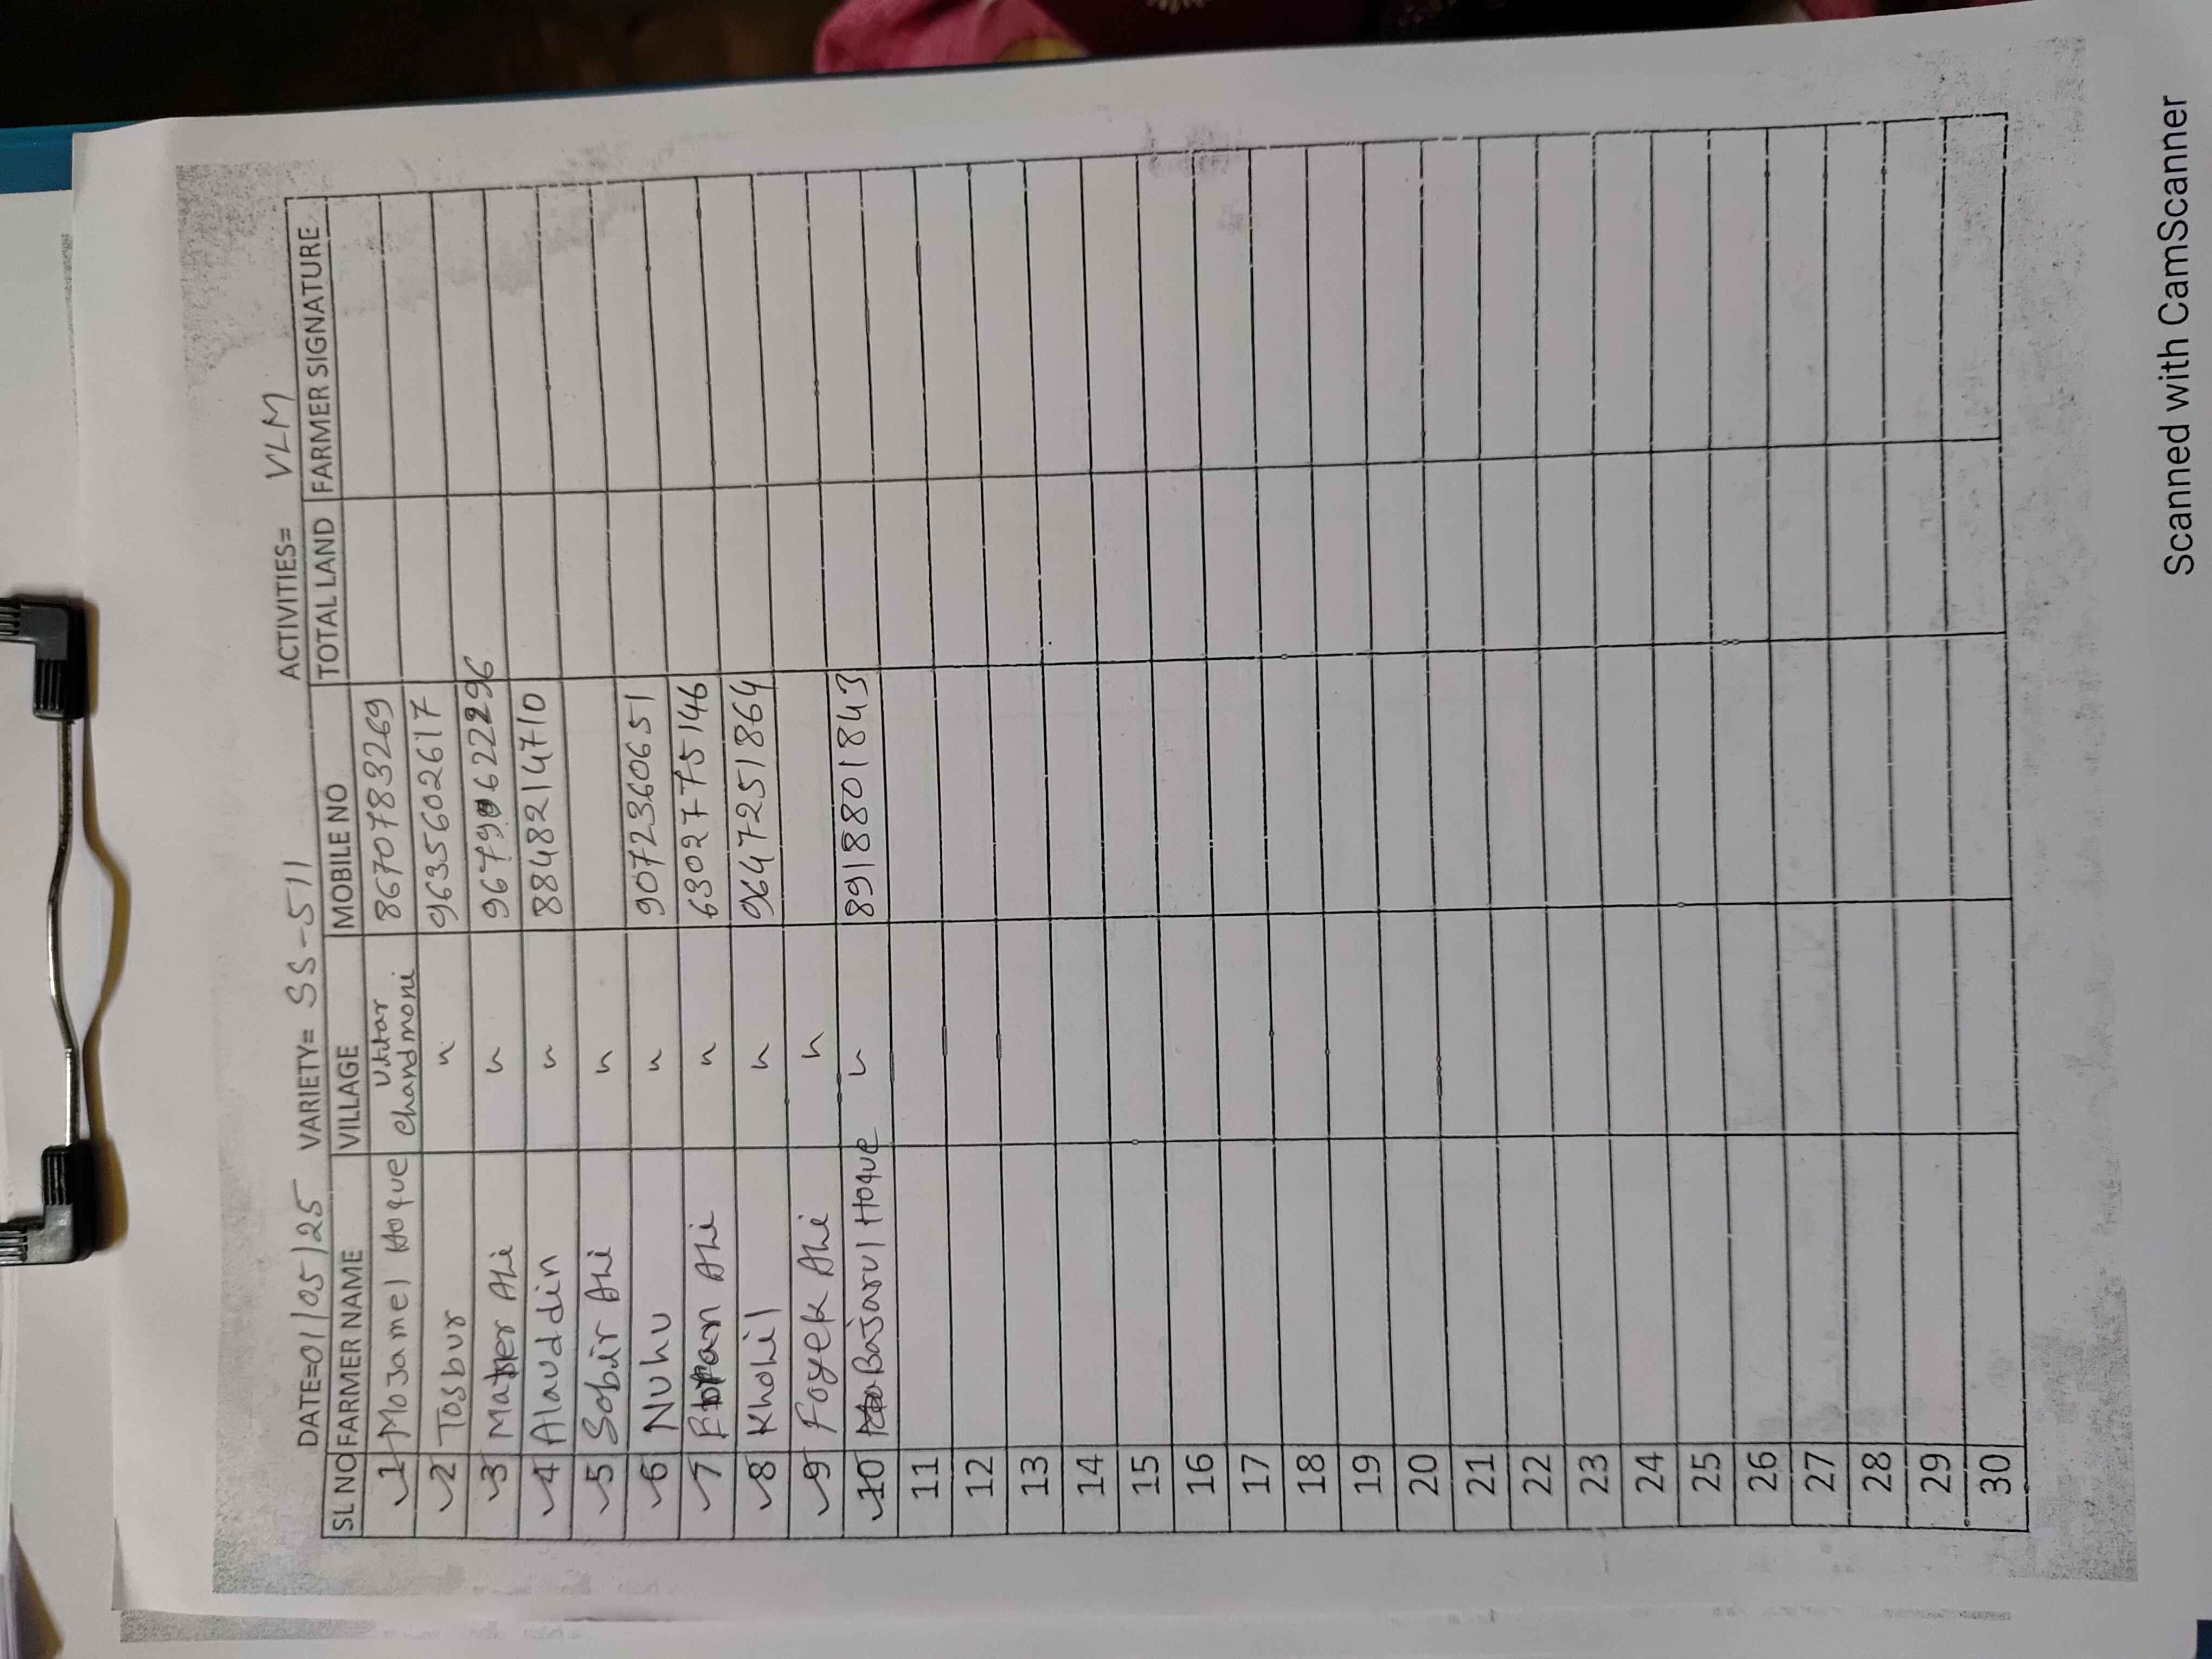 DATE=01/05/25 VARIETY= SS-511 ACTIVITIES= VLM
SL NO FARMER NAME VILLAGE MOBILE NO TOTAL LAND FARMER SIGNATURE
1 Mozamel Hoque Uttar Chandmoni 8670783269
2 Tosbur " 9635602617
3 Ali " 9679622296
4 Alauddin " 8848214710
5 Sobir Ali "
6 Nuhu " 9072360651
7 Ali " 6302775146
8 Kholil " 9647251864
9 Foyek Ali "
10 Bajarul Hoque " 8918801843
11
12
13
14
15
16
17
18
19
20
21
22
23
24
25
26
27
28
29
30
Scanned with CamScanner